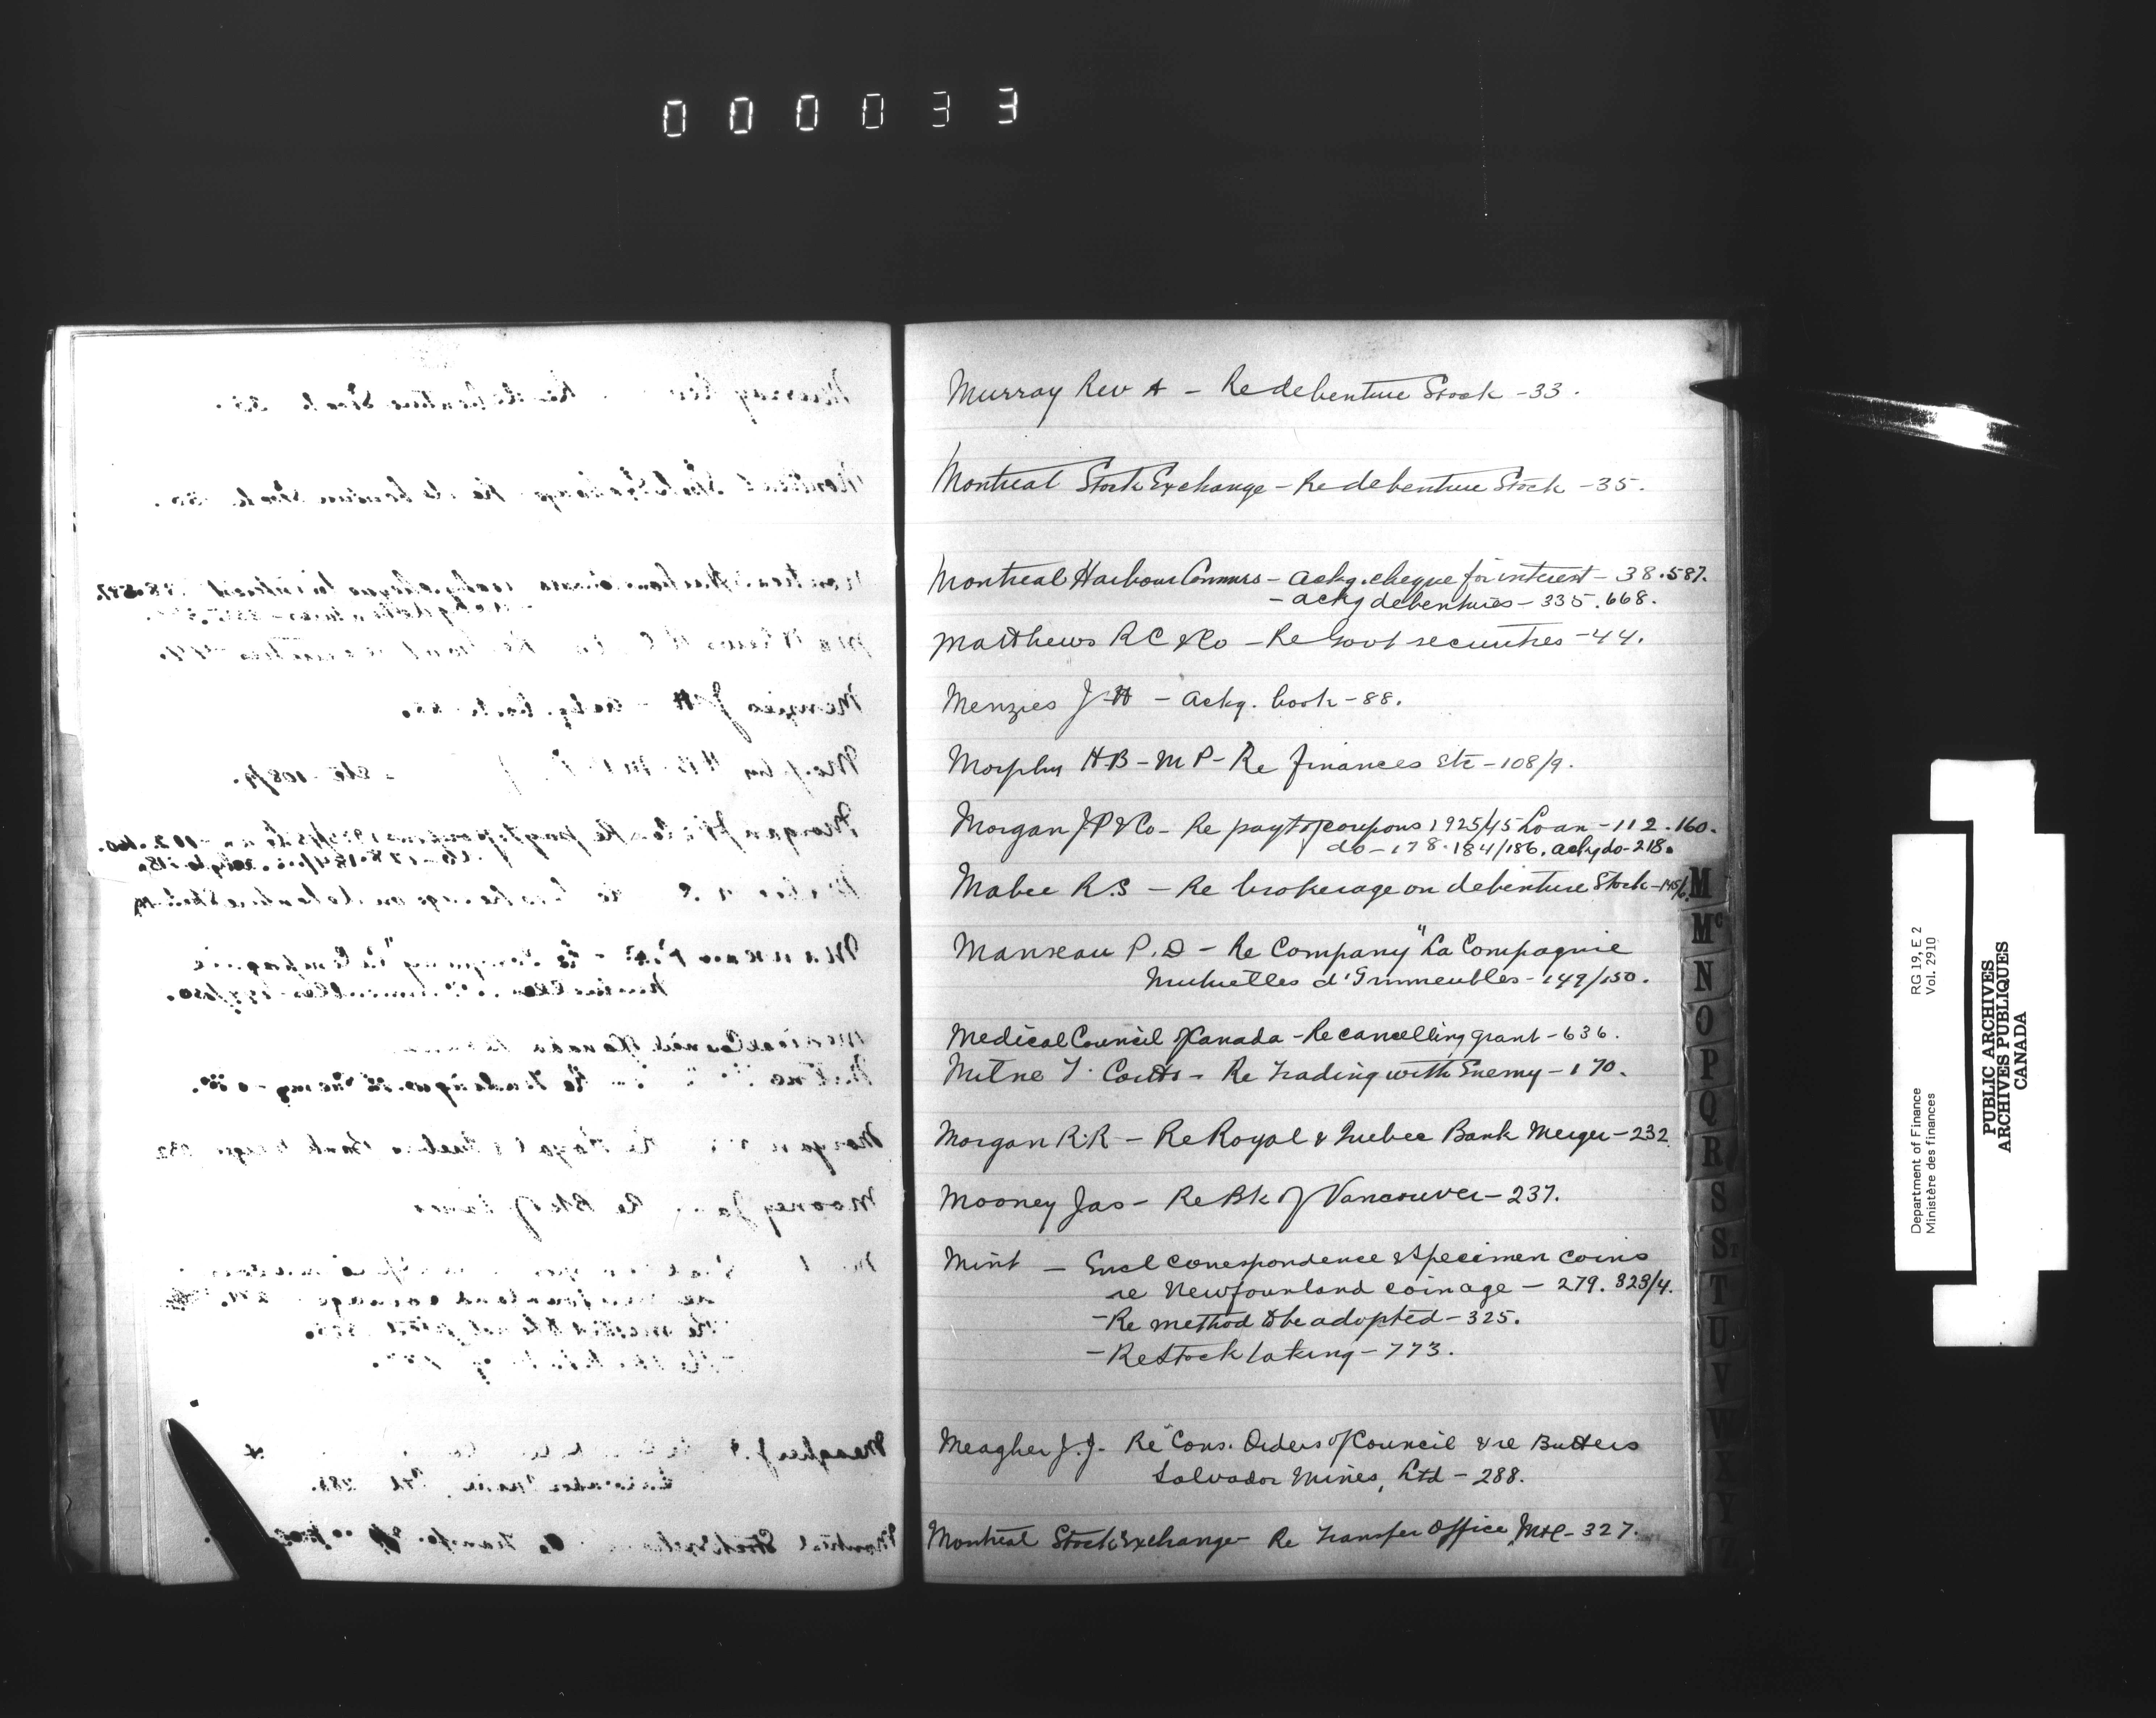 000033
Murray Rev A - Re debenture Stock - 33.
Montreal Stock Exchange - Re debenture Stock - 35.
Montreal Harbour Commrs - ackg. cheque for interest - 38.587.
- ackg debentures - 335.668.
Matthews R C & Co - Re Govt securities - 44.
Menzies J H - ackg. book - 88.
Morphy H B - M P - Re finances etc - 108/9.
Morgan J P & Co - Re payt of coupons 1925/45 Loan - 112.160.
do - 178.184/186. ackg do - 218.
Mabee R.S - Re brokerage on debenture Stock - 145/6.
Manseau P.D - Re Company "La Compagnie
Mutuelles d'Immeubles - 149/150.
Medical Council of Canada - Re cancelling grant - 636.
Milne T. Coutts - Re Trading with Enemy - 170.
Morgan R.R - Re Royal & Quebec Bank Merger - 232
Mooney Jas - Re Bk of Vancouver - 237.
Mint - Encl correspondence & specimen coins
re Newfounland coinage - 279. 323/4.
- Re method to be adopted - 325.
- Re Stock taking - 773.
Meagher J.J. Re Cons. Orders of Council & re Butters
Salvador Mines, Ltd - 288.
Montreal Stock Exchange - Re Transfer Office Mtl - 327.
M
Mc
N
O
P
Q
R
S
St
T
U
V
W
X
Y
Z
Department of Finance RG 19, E 2
Ministère des finances Vol. 2910
PUBLIC ARCHIVES
ARCHIVES PUBLIQUES
CANADA